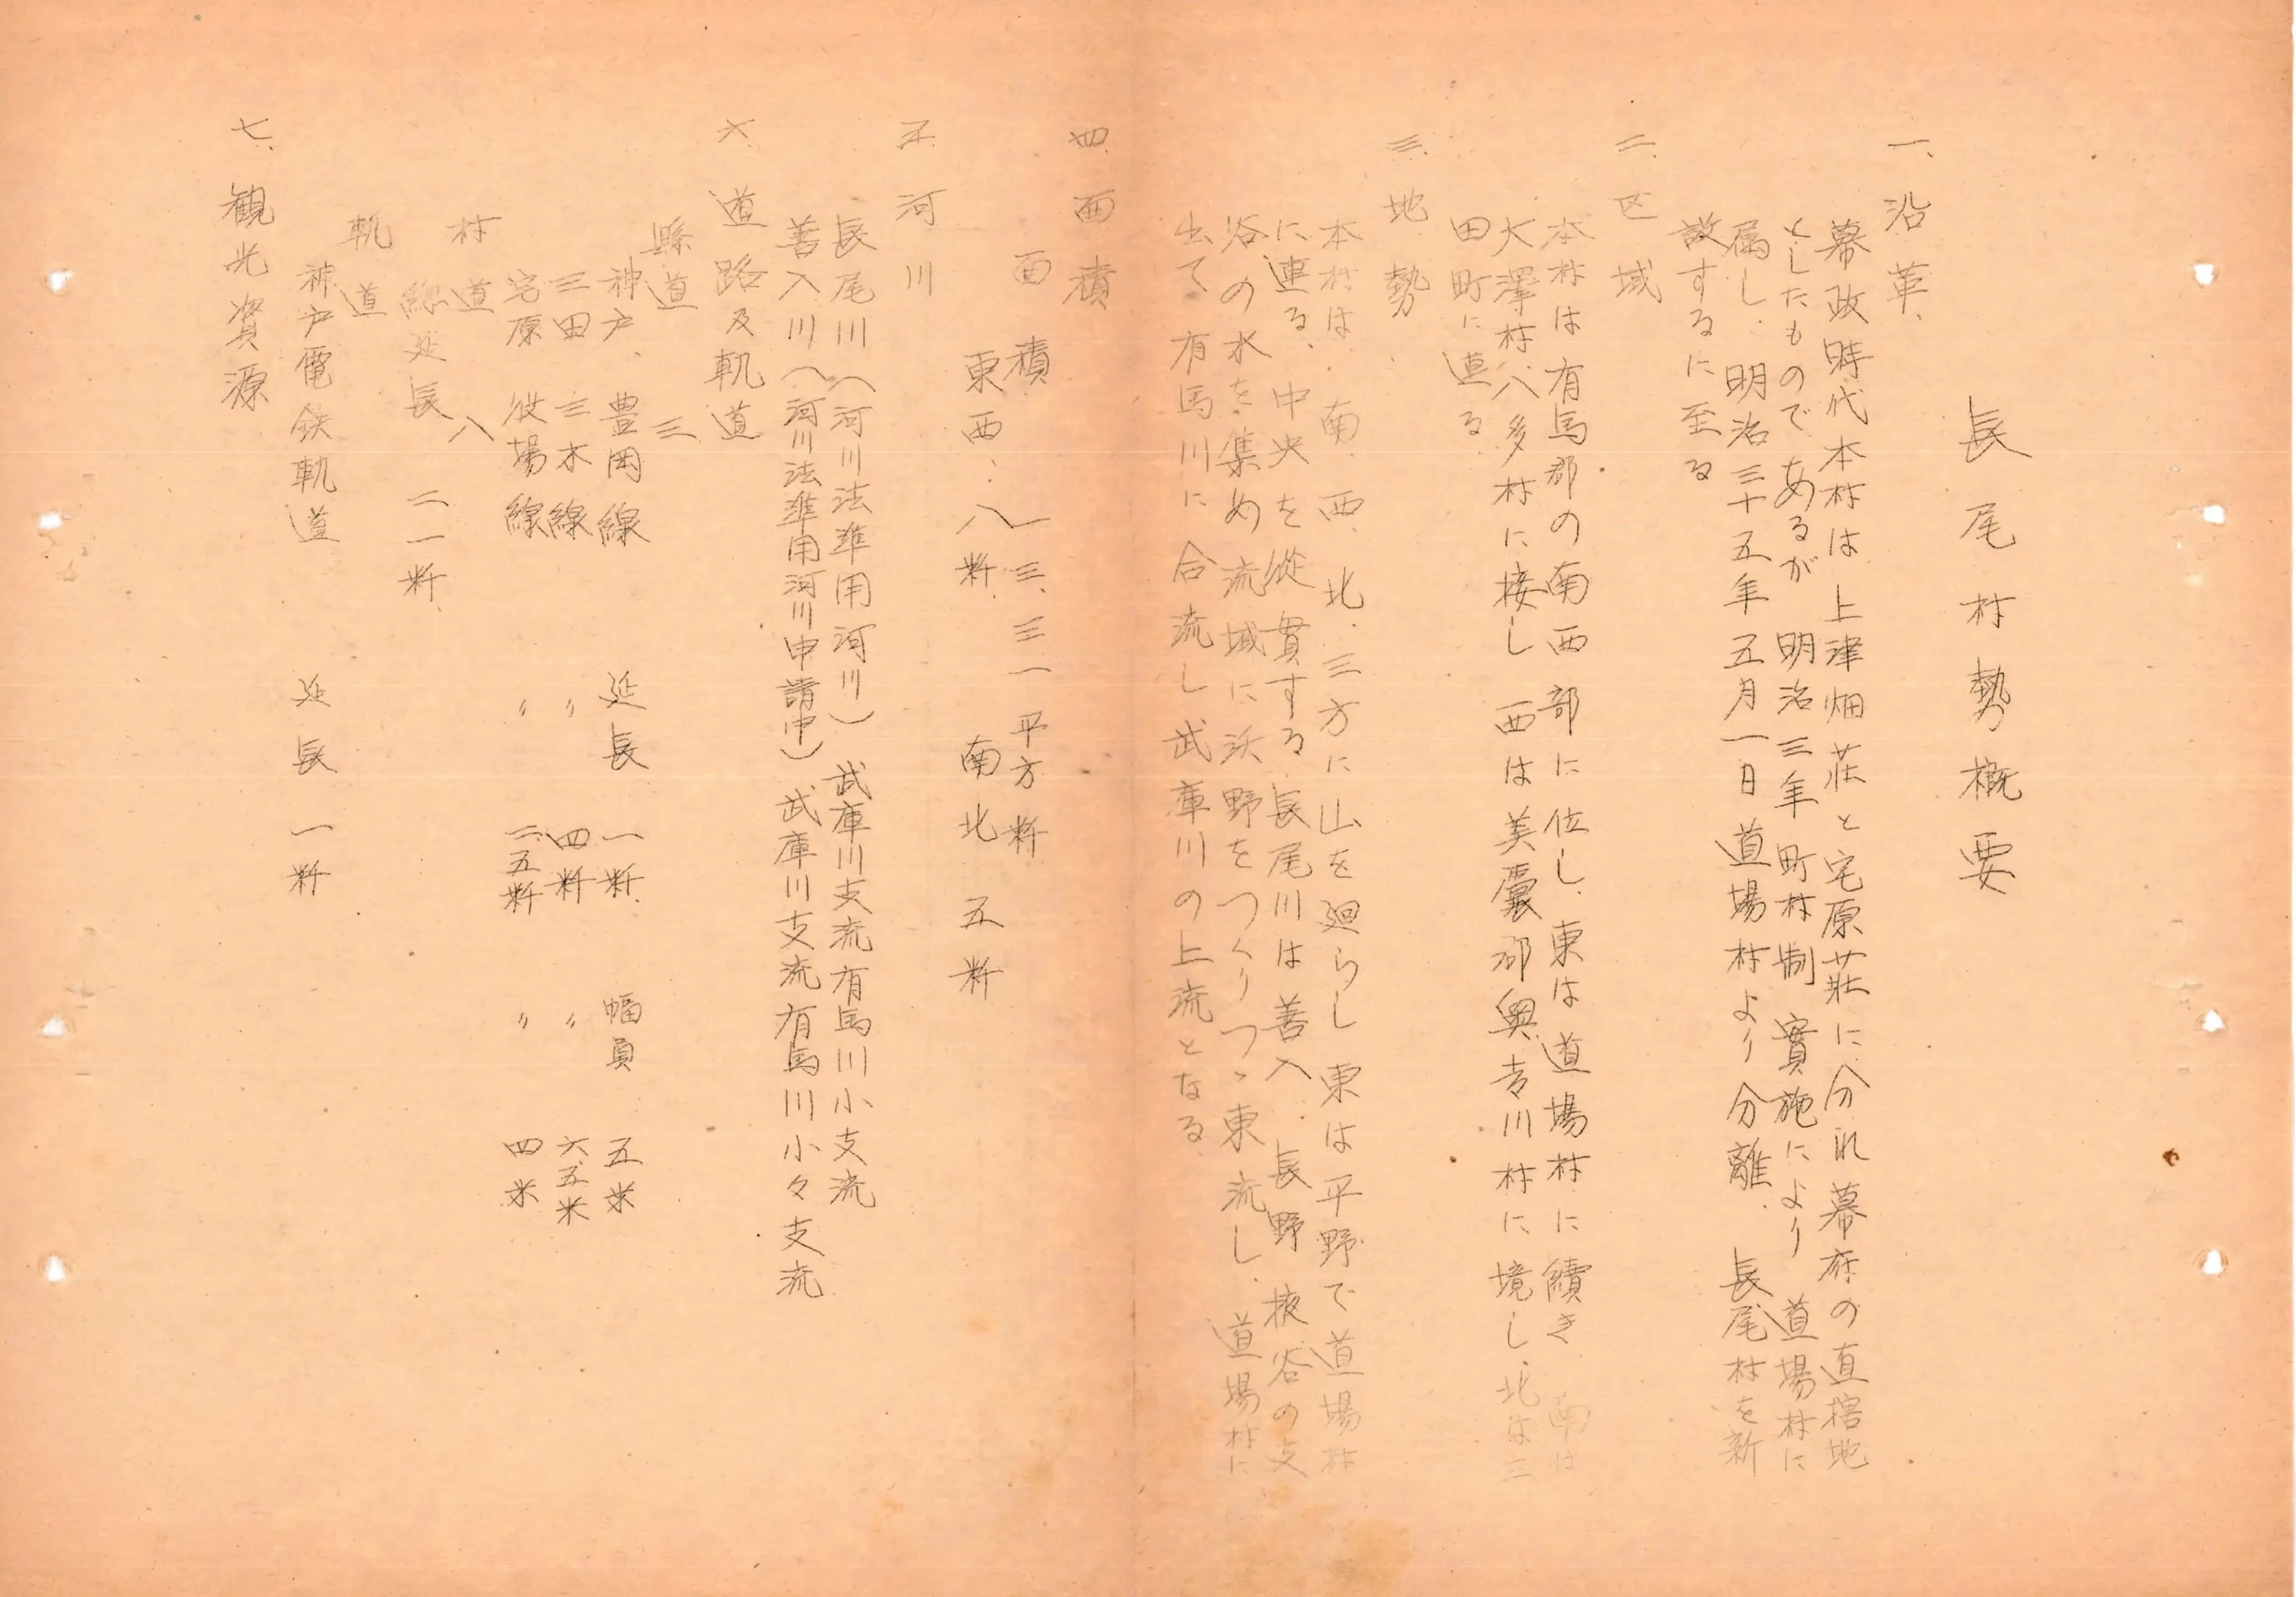 長尾村勢概要
一、沿革、
幕政時代本村は上津畑荘と宅原荘に分れ幕府の直轄地
としたものであるが 明治三年町村制實施により 道場村に
属し、明治三十五年五月一日道場村より分離、長尾村を新
設するに至る
二、区域
本村は有馬郡の南西部に位し、東は道場村に續き 南は
大澤村、八多村に接し 西は美嚢郡奥吉川村に境し、北は三
田町に連る、
三、地勢
本村は、南、西、北、三方に山を廻らし 東は平野で道場村
に連る、中央を縦貫する長尾川は善入、長野、挾谷の支
谷の水を集め流域に沃野をつくりつゝ東流し、道場村に
出て有馬川に合流し武庫川の上流となる
四、面積
面積 一三、三一平方粁
東西、八粁、南北 五粁
五、河川
長尾川(河川法準用河川)武庫川支流有馬川小支流
善入川(河川法準用河川申請中)武庫川支流有馬川小々支流
六、道路及軌道
縣道 三
神戸、豊岡線 延長 一粁、幅員 五米
三田 三木線 〃 四粁 〃 六、五米
宅原 役場線 〃 二、五粁 〃 四米
村道 八
總延長 二一粁、
軌道
神戸電鉄軌道 延長 一粁
七、観光資源